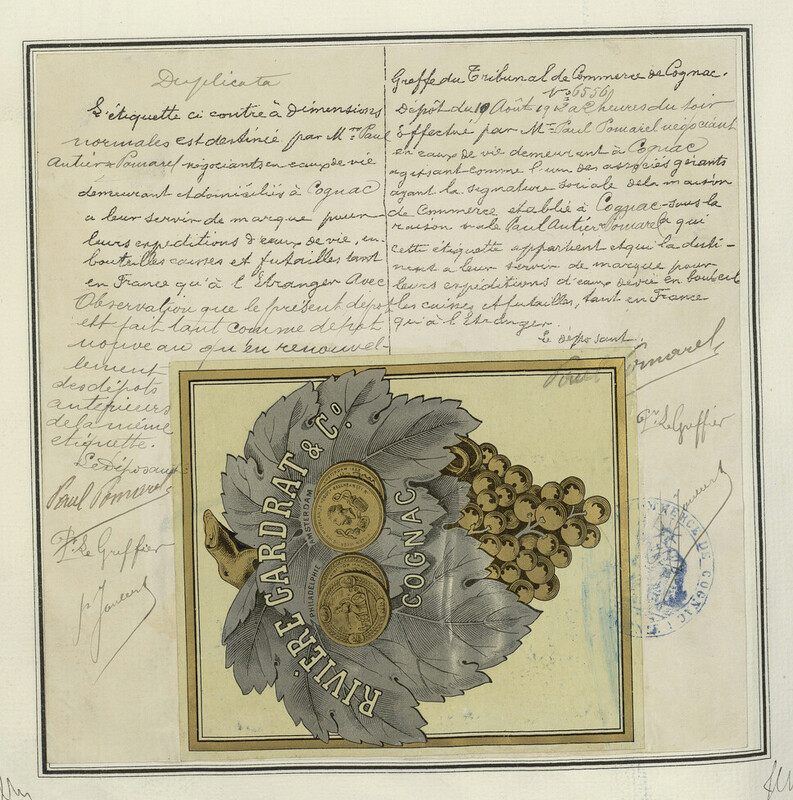 Duplicata
L'étiquette ci contre à dimensions
normales est destinée par Mrs Paul
Antier & Pomarel négociants en eaux de vie
demeurant et domiciliés à Cognac
a leur servir de marque pour
leurs expeditions d'eaux de vie, en
bouteilles caisses et futailles tant
en France qu'à l'Etranger Avec
Observation que le présent depot
est fait tant comme depot
nouveau qu'en renouvel-
lement
des dépots
antérieurs
de la même
etiquette.
Le Déposant
Paul Pomarel
Pr Le Greffier
Greffe du Tribunal de Commerce de Cognac.
No 6556
Dépôt du Août à 2 heures du soir
Effectué par Mr Paul Pomarel négociant
en eaux de vie demeurant à Cognac
agissant comme l'un des associés gérants
ayant la signature sociale de la maison
de Commerce etablie à Cognac sous la
raison sociale Paul Antier & Pomarel à qui
cette étiquette appartient et qui la desti-
nent a leur servir de marque pour
leurs expéditions d'eaux de vie en bouteil
les caisses et futailles, tant en France
qu'à l'Etranger.
Le déposant.
Paul Pomarel
Pr Le Greffier
RIVIÈRE GARDRAT & Co
AMSTERDAM
PHILADELPHIE
COGNAC
COMMERCE DE COGNAC